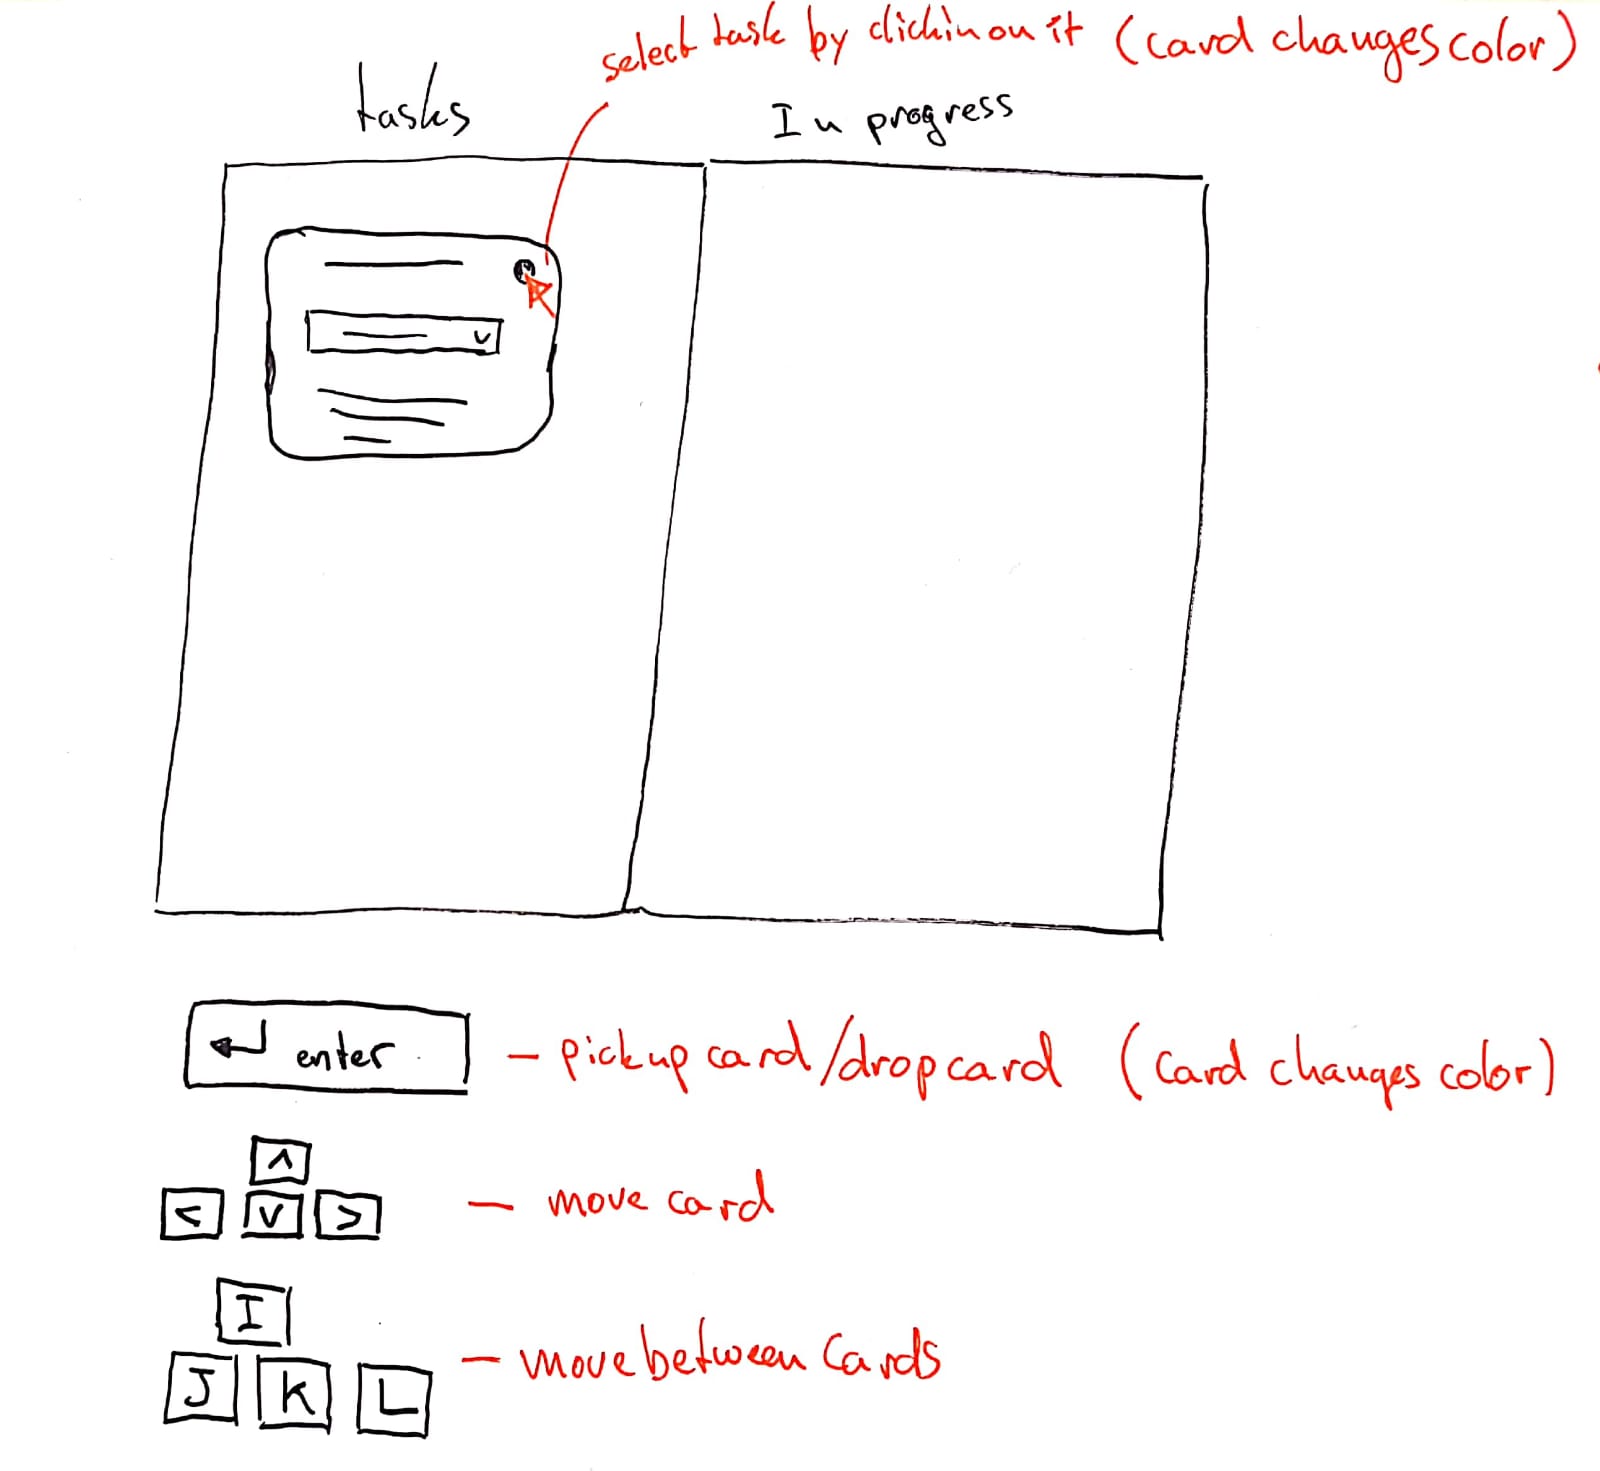 select task by clickin on it (card changes color)
tasks
In progress
enter
- pick up card/drop card (card changes color)
^
< v >
- move card
I
J K L
- move between cards